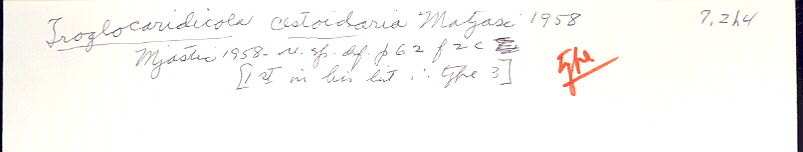 Troglocaridicola cestoidaria Matjasic 1958 7.264
Mjastic 1958- n. sp. df. p 62 f 2c
[1st in his list ∴ type 3]
type